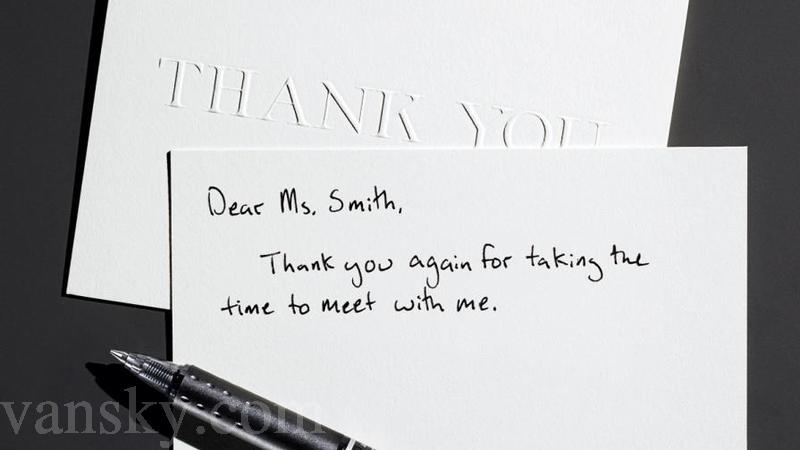 THANK YOU
Dear Ms. Smith,
Thank you again for taking the
time to meet with me.
vansky.com